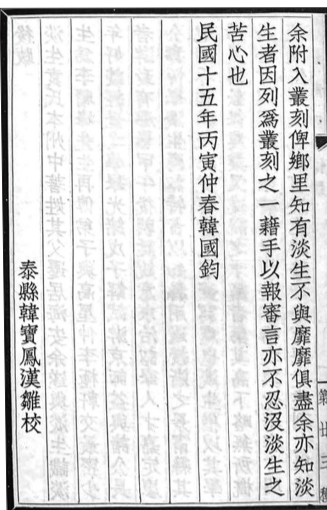 余附入叢刻俾鄉里知有淡生不與靡靡俱盡余亦知淡
生者因列爲叢刻之一藉手以報審言亦不忍沒淡生之
苦心也
民國十五年丙寅仲春韓國鈞
泰縣韓寶鳳漢雛校